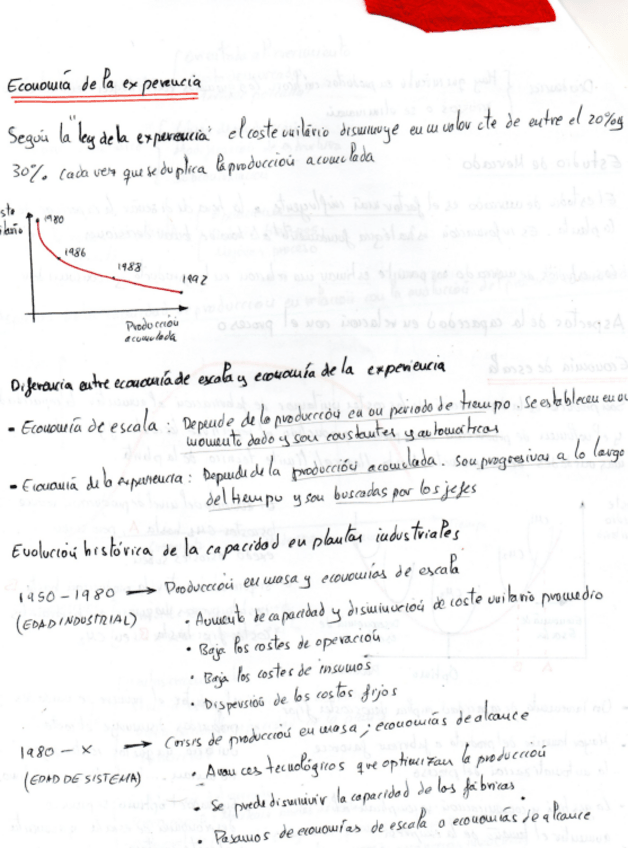 Economía de la experiencia
Según la "ley de la experiencia" el coste unitario disminuye en un valor cte de entre el 20% y
30%. cada vez que se duplica la producción acumulada
1980
1986
1988
1992
Producción
acumulada
Diferencia entre economía de escala y economía de la experiencia
- Economía de escala : Depende de la producción en un periodo de tiempo. Se establecen en un
momento dado y son constantes y automáticas
- Economía de la experiencia : Depende de la producción acumulada. Son progresivas a lo largo
del tiempo y son buscadas por los jefes
Evolución histórica de la capacidad en plantas industriales
1950 - 1980 → Producción en masa y economías de escala
(EDAD INDUSTRIAL)
• Aumento de capacidad y disminución de coste unitario promedio
• Baja los costes de operación
• Baja los costes de insumos
• Dispersión de los costos fijos
1980 - X → Crisis de producción en masa ; economías de alcance
(EDAD DE SISTEMA)
• Avances tecnológicos que optimizan la producción
• Se puede disminuir la capacidad de las fábricas.
• Pasamos de economías de escala a economías de alcance